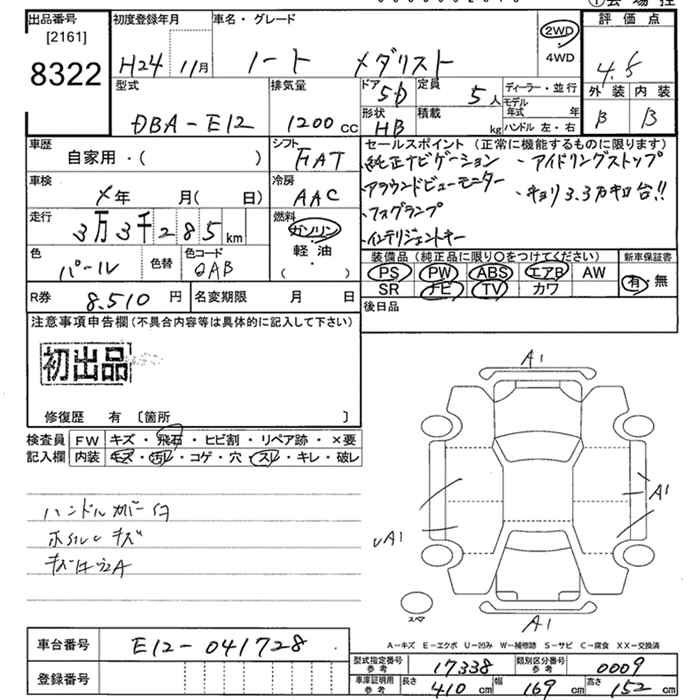 出品番号 初度登録年月 車名・グレード 評価点
[2161]
8322
H24 11月 ノート メダリスト 2WD 4.5
4WD
型式 排気量 ドア 定員 ディーラー・並行 外装 内装
DBA-E12 1200cc 5D 5人 モデル年式 年 B B
形状 積載 ハンドル 左・右
HB kg
車歴 シフト セールスポイント(正常に機能するものに限ります)
自家用・( ) FAT 純正ナビゲーション ・アイドリングストップ
車検 冷房 ・アラウンドビューモニター ・キョリ3.3万キロ台!!
×年 月( 日) AAC ・フォグランプ
走行 燃料 ・インテリジェントキー
3万3千285km ガソリン
軽油
( )
色 色替 色コード 装備品(純正品に限り○をつけてください) 新車保証書
パール QAB PS PW ABS エアB AW 有・無
SR ナビ TV カワ
R券 8,510円 名変期限 月 日 後日品
注意事項申告欄(不具合内容等は具体的に記入して下さい)
初出品
修復歴 有 〔箇所 〕
検査員 FW キズ・飛石・ヒビ割・リペア跡・×要
記入欄 内装 キズ・汚レ・コゲ・穴・スレ・キレ・破レ
ハンドルカバー
キズ
A1
A1
A1
A1
スペア
A-キズ E-エクボ U-凹み W-補修跡 S-サビ C-腐食 XX-交換済
車台番号 E12-041728
登録番号
型式指定番号 参考 17338 類別区分番号 参考 0009
車庫証明用 参考 長さ 410cm 幅 169cm 高さ 152cm